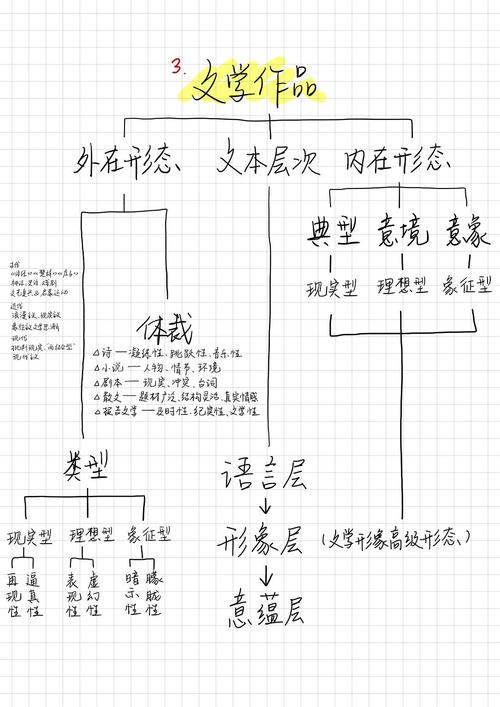 3. 文学作品
外在形态 文本层次 内在形态
典型 意境 意象
现实型 理想型 象征型
古代
近代
浪漫主义、现实主义
现代
现代主义
体裁
△诗—凝练性、跳跃性、音乐性
△小说—人物、情节、环境
△剧本—现实、冲突、台词
△散文—题材广泛、结构灵活、真实情感
△报告文学—及时性、纪实性、文学性
类型
语言层
现实型 理想型 象征型
形象层 (文学形象高级形态)
再现性 逼真性 表现性 虚幻性 暗示性 朦胧性
意蕴层